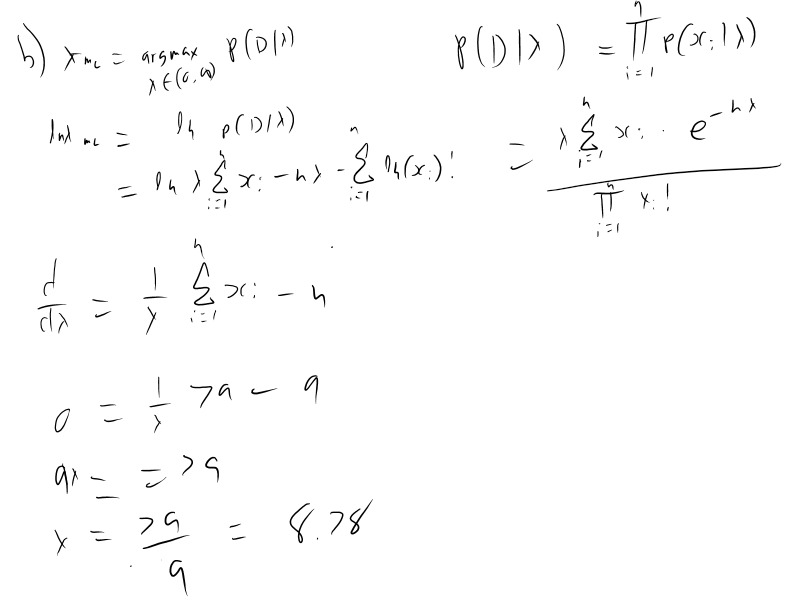 b) λ_ML = argmax_{λ∈(0,∞)} p(D|λ)
p(D|λ) = ∏_{i=1}^{n} p(x_i|λ)
= λ^{∑_{i=1}^{n} x_i} · e^{-nλ} / ∏_{i=1}^{n} x_i!
ln λ_ML = ln p(D|λ)
= ln λ ∑_{i=1}^{n} x_i - nλ - ∑_{i=1}^{n} ln(x_i)!
d/dλ = 1/λ ∑_{i=1}^{n} x_i - n
0 = 1/λ 79 - 9
9λ = = 79
λ = 79/9 = 8.78